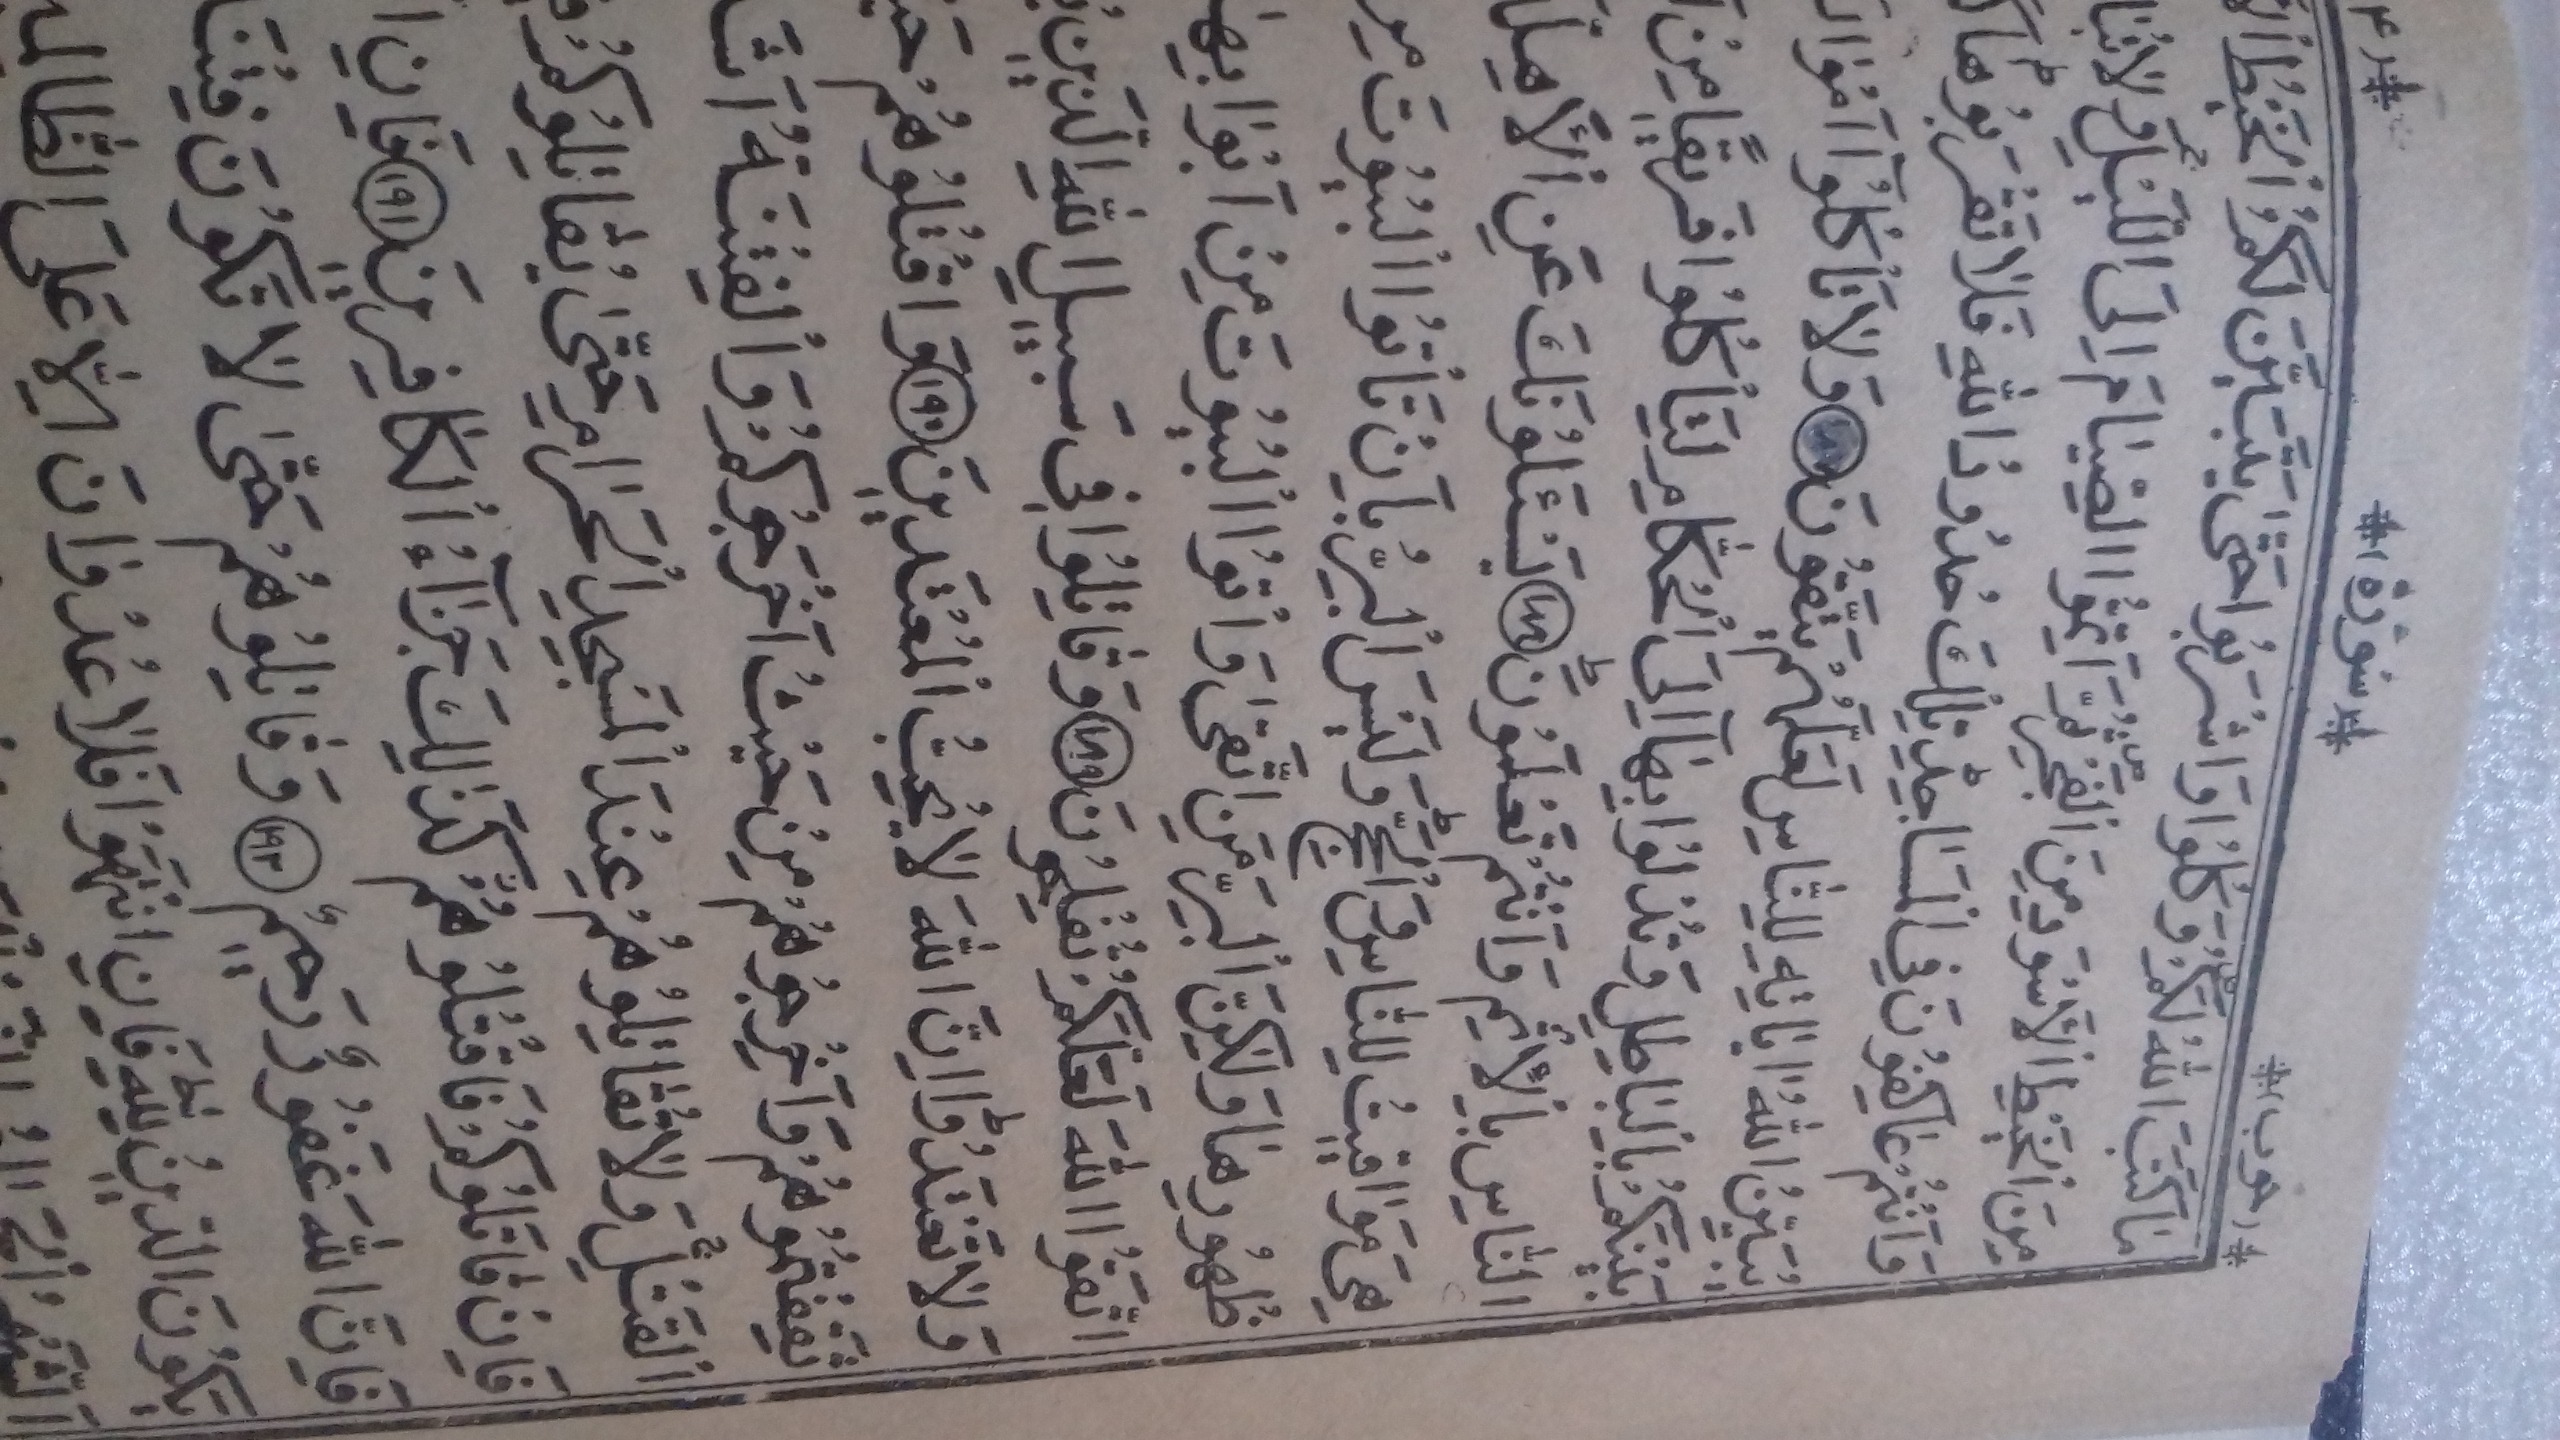 *حزب* *سورة*
مَا كَتَبَ اللّٰهُ لَكُمْ وَكُلُوا وَاشْرَبُوا حَتّٰى يَتَبَيَّنَ لَكُمُ الْخَيْطُ
مِنَ الْخَيْطِ الْأَسْوَدِ مِنَ الْفَجْرِ ثُمَّ أَتِمُّوا الصِّيَامَ إِلَى اللَّيْلِ وَلَا
وَأَنْتُمْ عَاكِفُونَ فِي الْمَسَاجِدِ تِلْكَ حُدُودُ اللّٰهِ فَلَا تَقْرَبُوهَا
يُبَيِّنُ اللّٰهُ آيَاتِهِ لِلنَّاسِ لَعَلَّهُمْ يَتَّقُونَ ١٨٧ وَلَا تَأْكُلُوا
بَيْنَكُمْ بِالْبَاطِلِ وَتُدْلُوا بِهَا إِلَى الْحُكَّامِ لِتَأْكُلُوا فَرِيقًا مِنْ
النَّاسِ بِالْإِثْمِ وَأَنْتُمْ تَعْلَمُونَ ١٨٨ يَسْـَٔلُونَكَ عَنِ
هِيَ مَوَاقِيتُ لِلنَّاسِ وَالْحَجِّ وَلَيْسَ الْبِرُّ بِأَنْ تَأْتُوا الْبُيُوتَ مِنْ
ظُهُورِهَا وَلٰكِنَّ الْبِرَّ مَنِ اتَّقٰى وَأْتُوا الْبُيُوتَ مِنْ أَبْوَابِهَا
اتَّقُوا اللّٰهَ لَعَلَّكُمْ تُفْلِحُونَ ١٨٩ وَقَاتِلُوا فِي سَبِيلِ اللّٰهِ الَّذِينَ
وَلَا تَعْتَدُوا إِنَّ اللّٰهَ لَا يُحِبُّ الْمُعْتَدِينَ ١٩٠ وَاقْتُلُوهُمْ
ثَقِفْتُمُوهُمْ وَأَخْرِجُوهُمْ مِنْ حَيْثُ أَخْرَجُوكُمْ وَالْفِتْنَةُ
الْقَتْلِ وَلَا تُقَاتِلُوهُمْ عِنْدَ الْمَسْجِدِ الْحَرَامِ حَتّٰى يُقَاتِلُوكُمْ
فَإِنْ قَاتَلُوكُمْ فَاقْتُلُوهُمْ كَذَالِكَ جَزَآءُ الْكَافِرِينَ ١٩١ فَإِنِ
فَإِنَّ اللّٰهَ غَفُورٌ رَحِيمٌ ١٩٢ وَقَاتِلُوهُمْ حَتّٰى لَا تَكُونَ
يَكُونَ الدِّينُ لِلّٰهِ فَإِنِ انْتَهَوْا فَلَا عُدْوَانَ إِلَّا عَلَى